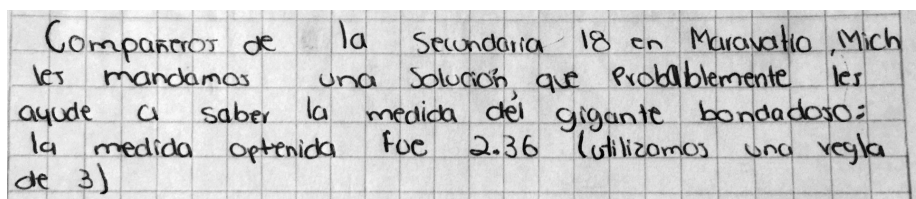 Compañeros de la Secundaria 18 en Maravatío, Mich
les mandamos una solución, que Probablemente les
ayude a saber la medida del gigante bondadoso:
la medida optenida fue 2.36 (utilizamos una regla
de 3)